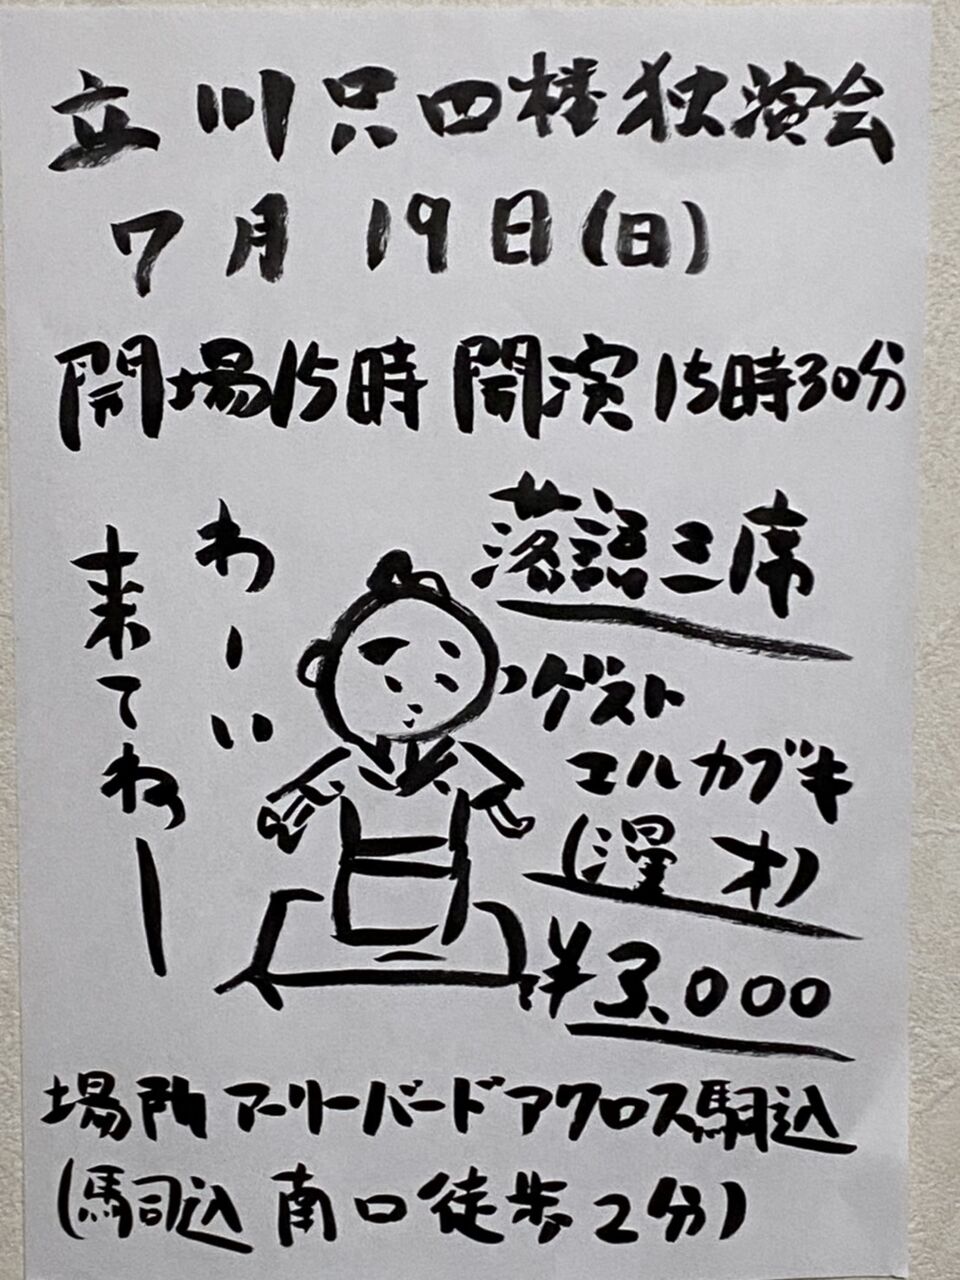 立川只四楼独演会
7月19日(日)
開場15時 開演15時30分
落語三席
わーい
来てねー
ゲスト
エルカブキ
(漫才)
¥3,000
場所 アーリーバードアクロス駒込
(駒込 南口徒歩2分)